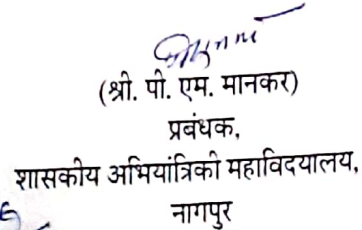 (श्री. पी. एम. मानकर)
प्रबंधक,
शासकीय अभियांत्रिकी महाविदयालय,
नागपुर